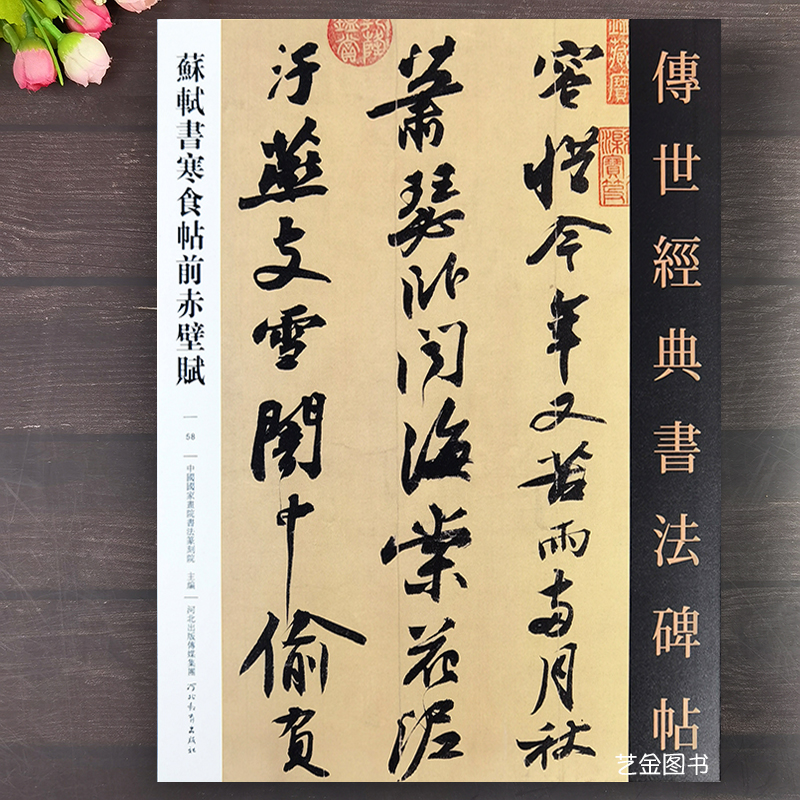 傳世經典書法碑帖
容惜今年又苦雨兩月秋
蕭瑟卧聞海棠花泥
汙燕支雪闇中偷負
蘇軾書寒食帖前赤壁賦
58
中國國家畫院書法篆刻院 主編
河北出版傳媒集團
河北教育出版社
艺金图书